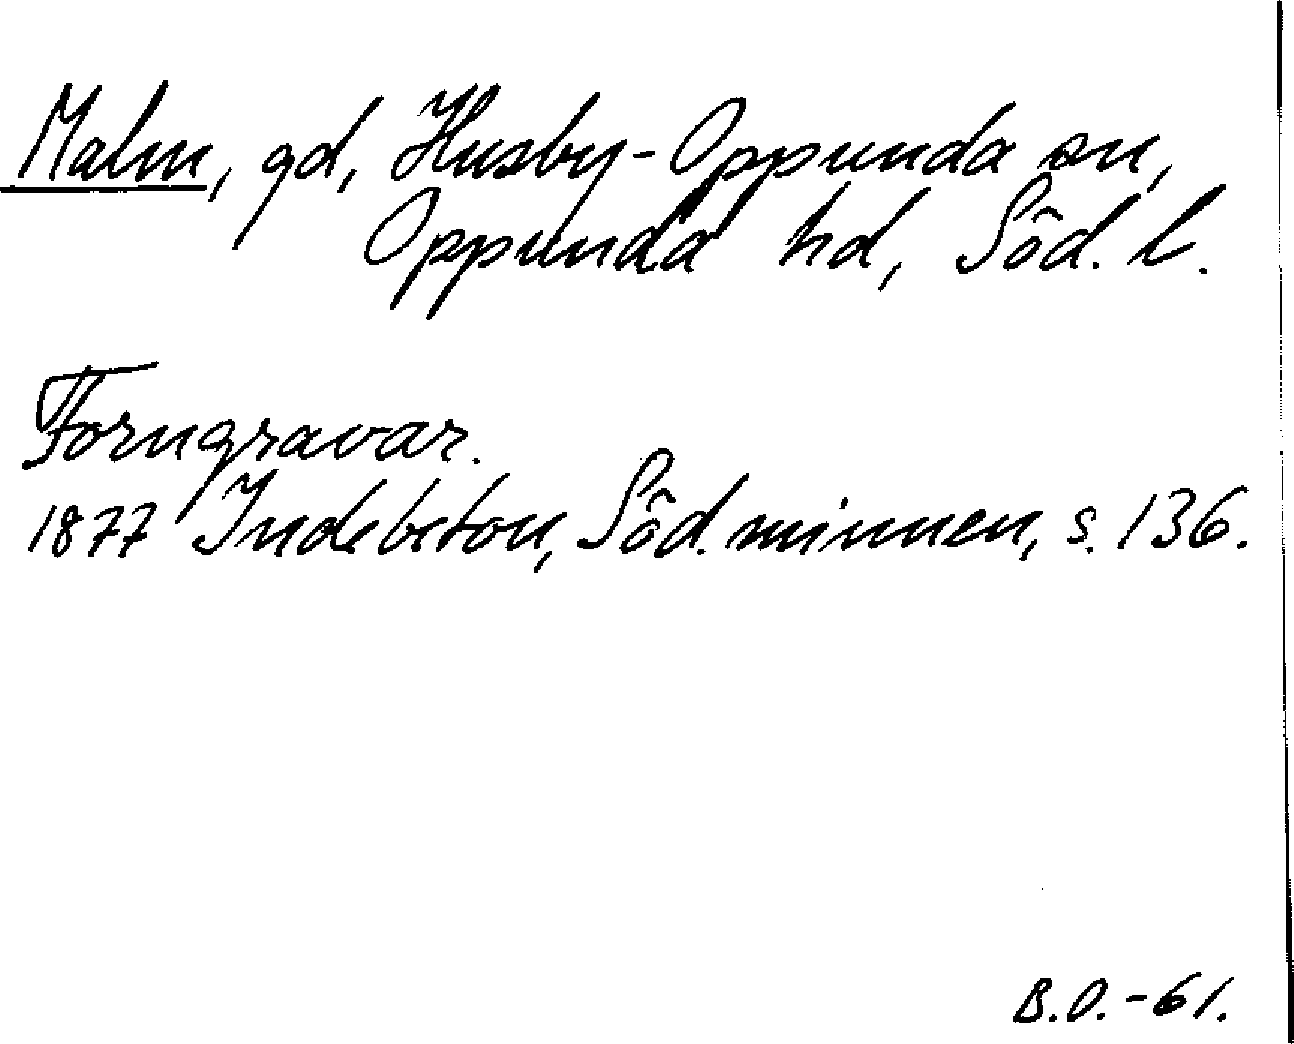 Malm, gd, Husby-Oppunda sn,
Oppunda hd, Söd. l.
Forngravar.
1877 Indebetou, Söd. minnen, s. 136.
B.O.-61.